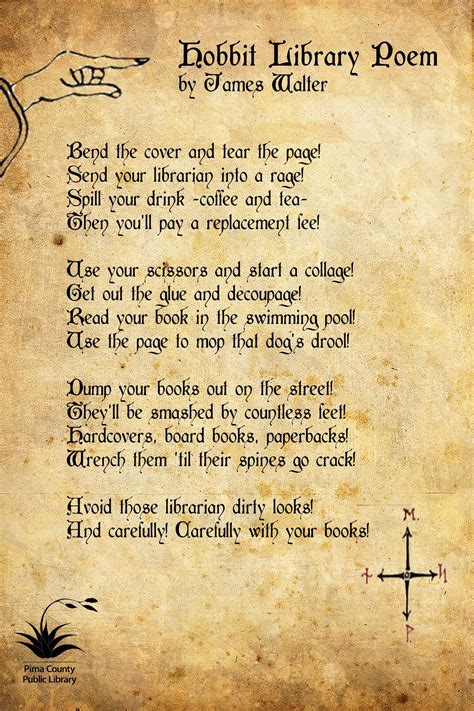 Hobbit Library Poem
by James Walter
Bend the cover and tear the page!
Send your librarian into a rage!
Spill your drink -coffee and tea-
Then you'll pay a replacement fee!
Use your scissors and start a collage!
Get out the glue and decoupage!
Read your book in the swimming pool!
Use the page to mop that dog's drool!
Dump your books out on the street!
They'll be smashed by countless feet!
Hardcovers, board books, paperbacks!
Wrench them 'til their spines go crack!
Avoid those librarian dirty looks!
And carefully! Carefully with your books!
Pima County
Public Library